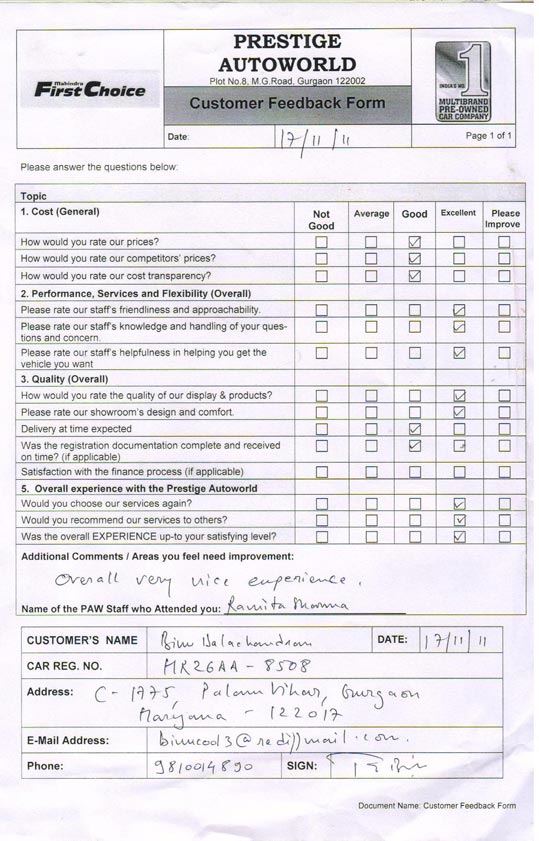 PRESTIGE
AUTOWORLD
Plot No.8, M.G.Road, Gurgaon 122002
Mahindra
First Choice
Customer Feedback Form
INDIA'S NO. 1
MULTIBRAND
PRE-OWNED
CAR COMPANY
Date: 17/11/11
Page 1 of 1
Please answer the questions below:
Topic
1. Cost (General) Not Good Average Good Excellent Please Improve
How would you rate our prices?
How would you rate our competitors' prices?
How would you rate our cost transparency?
2. Performance, Services and Flexibility (Overall)
Please rate our staff's friendliness and approachability.
Please rate our staff's knowledge and handling of your ques-
tions and concern.
Please rate our staff's helpfulness in helping you get the
vehicle you want
3. Quality (Overall)
How would you rate the quality of our display & products?
Please rate our showroom's design and comfort.
Delivery at time expected
Was the registration documentation complete and received
on time? (if applicable)
Satisfaction with the finance process (if applicable)
5. Overall experience with the Prestige Autoworld
Would you choose our services again?
Would you recommend our services to others?
Was the overall EXPERIENCE up-to your satisfying level?
Additional Comments / Areas you feel need improvement:
Overall very nice experience.
Name of the PAW Staff who Attended you: Ramita Sharma
CUSTOMER'S NAME Binu Balachandran DATE: 17/11/11
CAR REG. NO. HR26AA - 8508
Address: C - 1775, Palam Vihar, Gurgaon
Haryana - 122017
E-Mail Address: binucool3@rediffmail.com.
Phone: 9810014890 SIGN:
Document Name: Customer Feedback Form